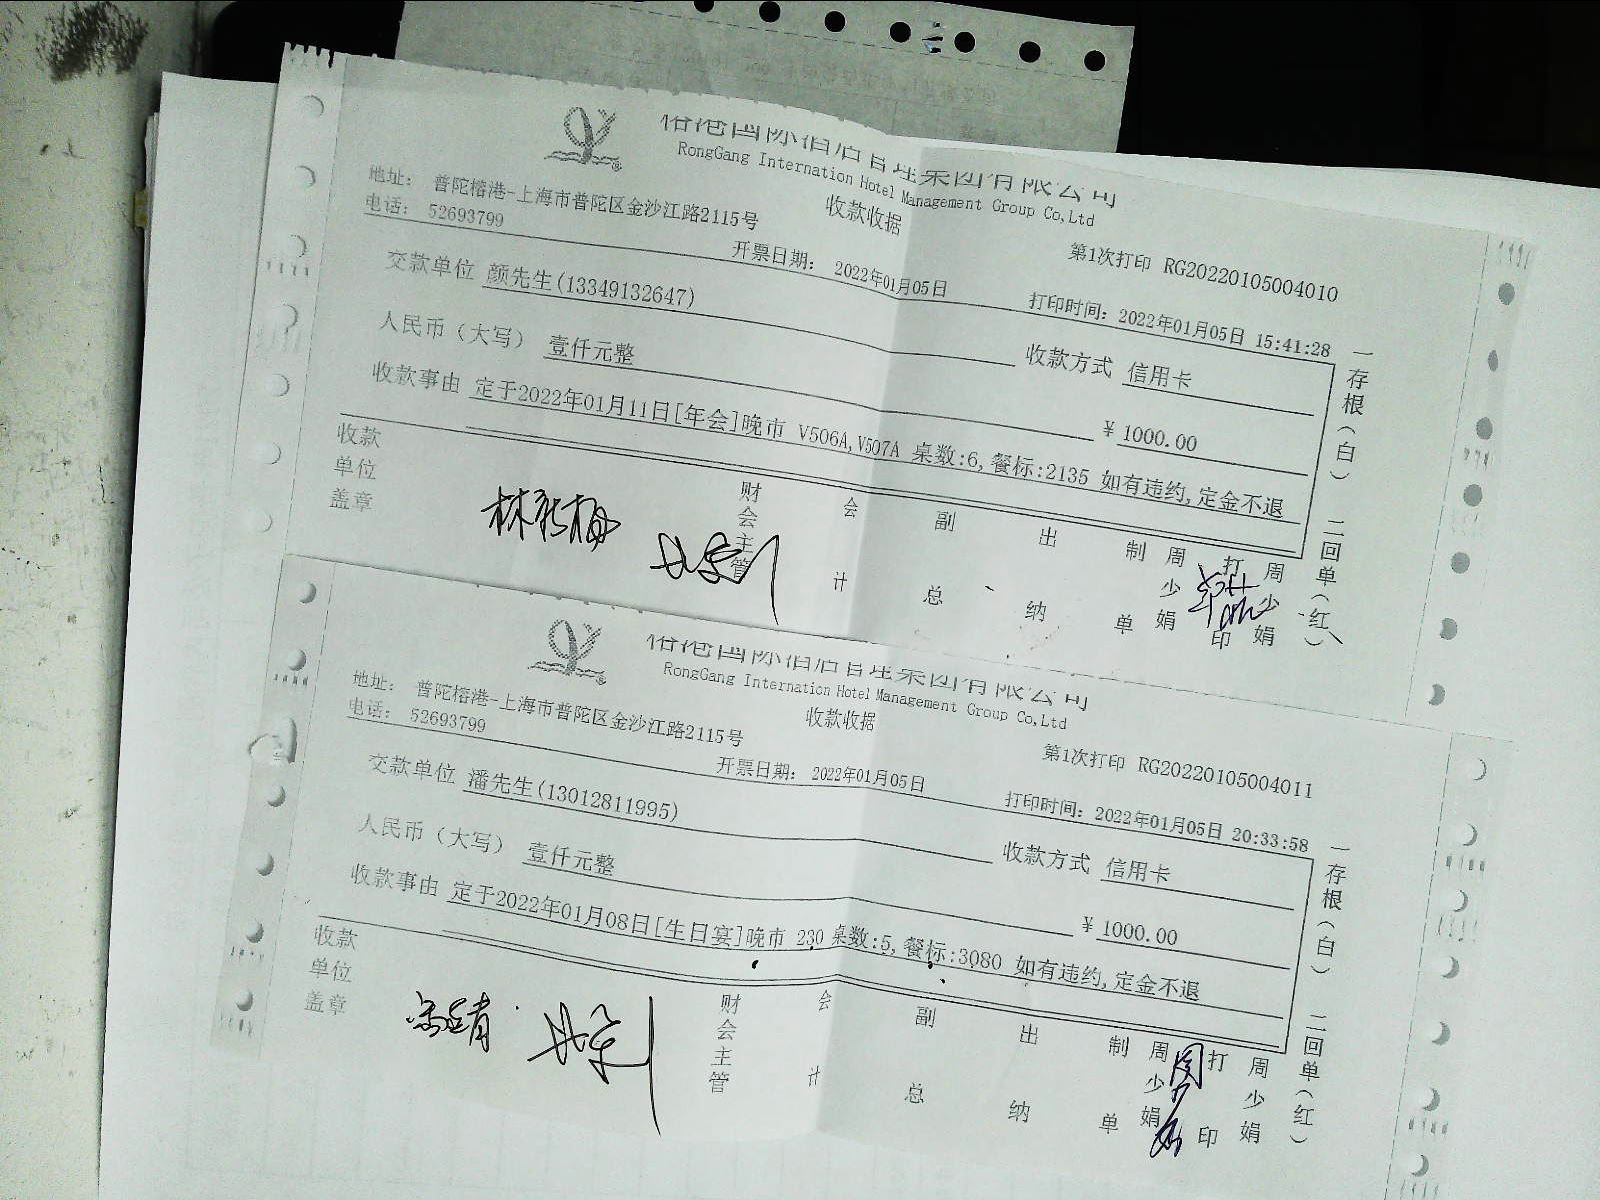 榕港国际酒店管理集团有限公司
RongGang Internation Hotel Management Group Co,Ltd
地址： 普陀榕港-上海市普陀区金沙江路2115号
电话： 52693799
收款收据
第1次打印 RG20220105004010
开票日期： 2022年01月05日
打印时间： 2022年01月05日 15:41:28
交款单位 颜先生(13349132647)
收款方式 信用卡
人民币（大写） 壹仟元整
¥ 1000.00
收款事由 定于2022年01月11日[年会]晚市 V506A,V507A 桌数:6,餐标:2135 如有违约,定金不退
收款单位盖章
财会主管
会计
副总
出纳
制单
周少娟
打印
周少娟
一存根（白） 二回单（红）
榕港国际酒店管理集团有限公司
RongGang Internation Hotel Management Group Co,Ltd
地址： 普陀榕港-上海市普陀区金沙江路2115号
电话： 52693799
收款收据
第1次打印 RG20220105004011
开票日期： 2022年01月05日
打印时间： 2022年01月05日 20:33:58
交款单位 潘先生(13012811995)
收款方式 信用卡
人民币（大写） 壹仟元整
¥ 1000.00
收款事由 定于2022年01月08日[生日宴]晚市 230 桌数:5,餐标:3080 如有违约,定金不退
收款单位盖章
财会主管
会计
副总
出纳
制单
周少娟
打印
周少娟
一存根（白） 二回单（红）